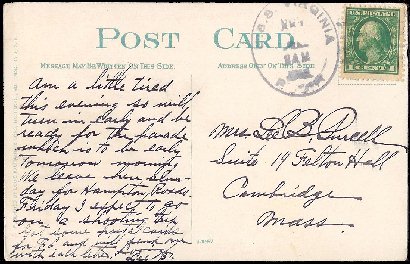 POST CARD
MESSAGE MAY BE WRITTEN ON THIS SIDE.
ADDRESS ONLY ON THIS SIDE.
U.S.S. VIRGINIA
Am a little tired
this evening so will
turn in early and be
ready for the parade
which is to be early
Tomorrow morning.
We leave here Sun-
day for Hampton Roads
Friday I expect to go
on a shooting
some
for and will send one
with each
Mrs. Geo B. Purcell
Suite 19 Felton Hall
Cambridge
Mass.